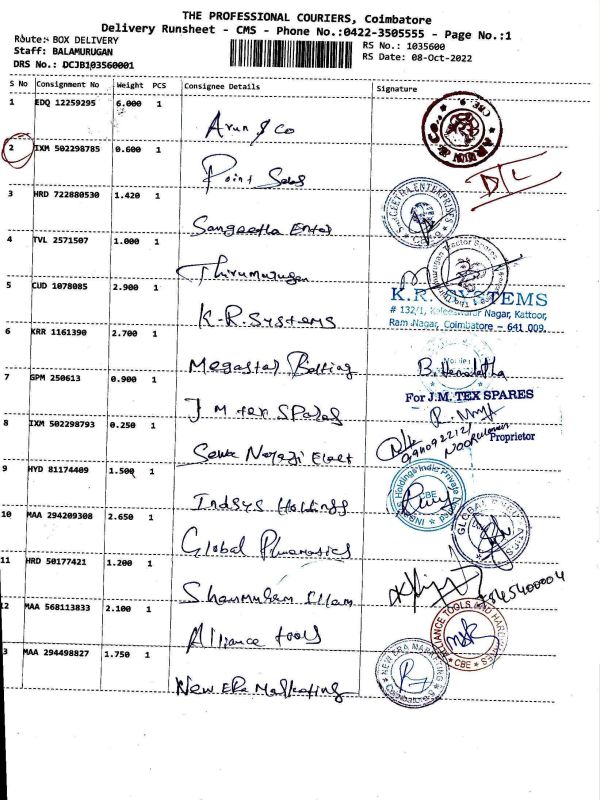 THE PROFESSIONAL COURIERS, Coimbatore
Delivery Runsheet - CMS - Phone No.:0422-3505555 - Page No.:1
Route:- BOX DELIVERY
Staff: BALAMURUGAN
RS No.: 1035600
RS Date: 08-Oct-2022
DRS No.: DCJB103560001
S No Consignment No Weight PCS Consignee Details Signature
1 EDQ 12259295 6.000 1
Arun & Co
2 IXM 502298785 0.600 1
Point Sales
DTL
3 HRD 722880530 1.420 1
SANGEETRA ENTERPRISES
Sangeetha Enter
4 TVL 2571507 1.000 1
Thirumurugan
5 CUD 1078085 2.900 1
K.R. SYSTEMS
# 132/1, Kaleeswarar Nagar, Kattoor,
Ram Nagar, Coimbatore - 641 009.
K.R. Systems
6 KRR 1161390 2.700 1
Megastar Belting
7 GPM 250613 0.900 1
For J.M. TEX SPARES
J M tex Spares
Proprietor
8 IXM 502298793 0.250 1
9 HYD 81174409 1.500 1
Indsys Holdings
10 MAA 294209308 2.650 1
Global
11 HRD 50177421 1.200 1
12 MAA 568113833 2.100 1
ALLIANCE TOOLS AND HARDWARES
CBE
Alliance tools
3 MAA 294498827 1.750 1
NEW ERA MARKETING
New ERa Marketing